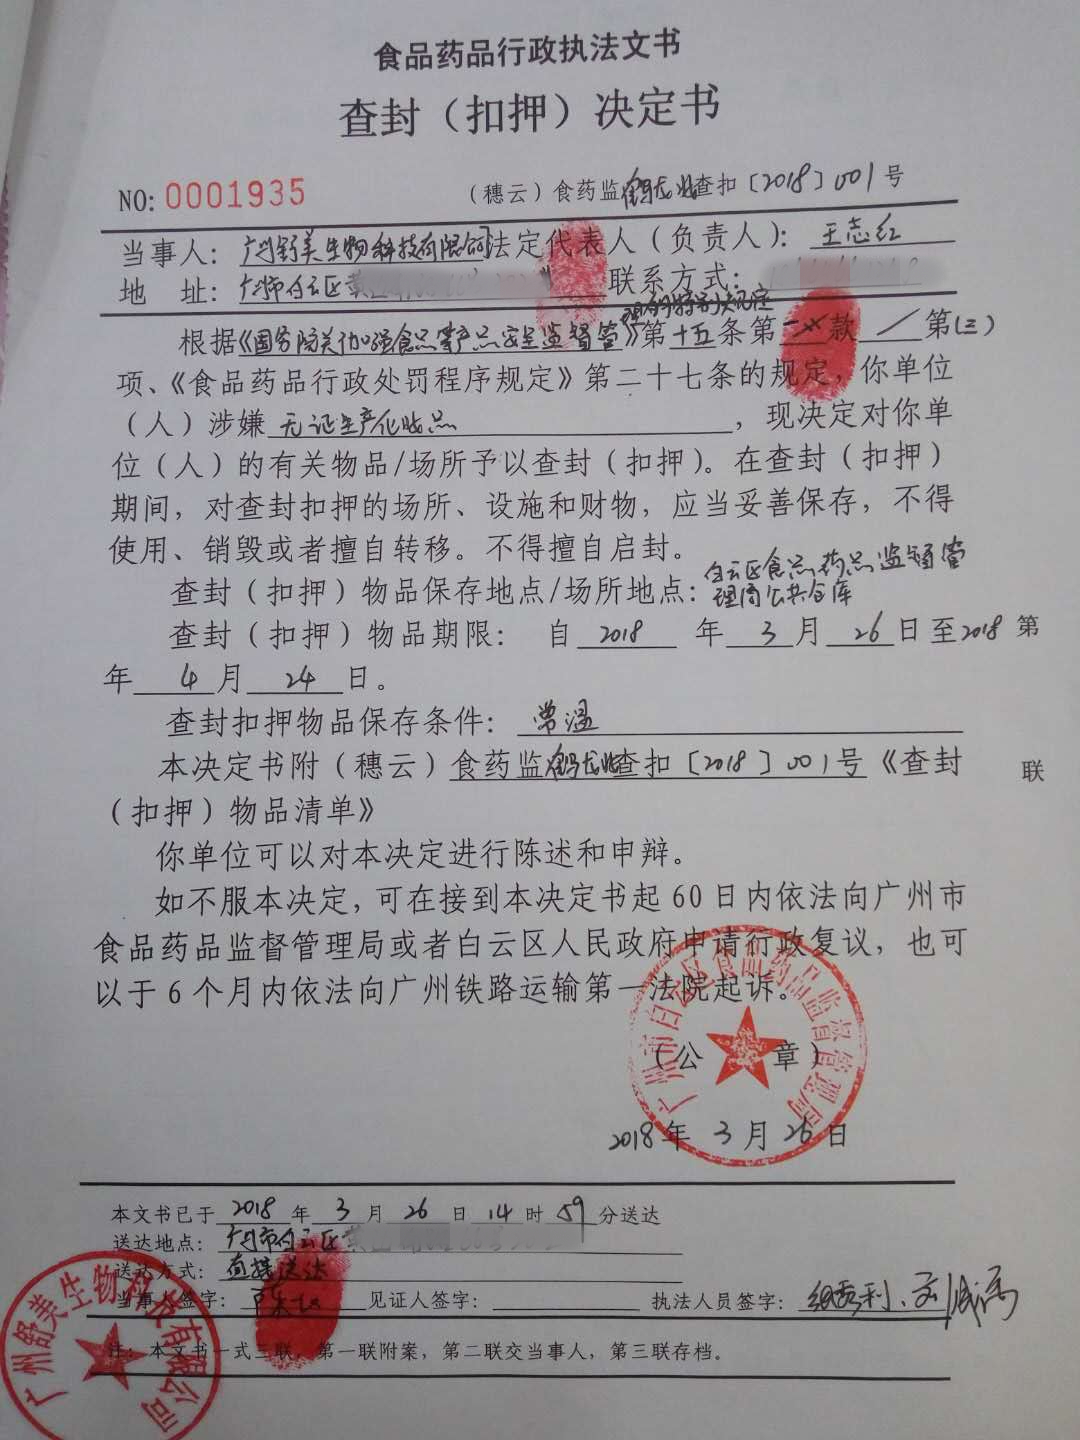 食品药品行政执法文书
查封（扣押）决定书
NO: 0001935 （穗云）食药监鹤龙北查扣〔2018〕001号
当事人：广州舒美生物科技有限公司 法定代表人（负责人）：王志红
地 址：广州市白云区黄 联系方式：
理的特别规定
根据《国务院关于加强食品等产品安全监督管》第十五条第一款 / 第(三)
项、《食品药品行政处罚程序规定》第二十七条的规定，你单位
（人）涉嫌 无证生产化妆品 ，现决定对你单
位（人）的有关物品/场所予以查封（扣押）。在查封（扣押）
期间，对查封扣押的场所、设施和财物，应当妥善保存，不得
使用、销毁或者擅自转移。不得擅自启封。
查封（扣押）物品保存地点/场所地点：白云区食品药品监督管
理局公共仓库
查封（扣押）物品期限： 自 2018 年 3 月 26 日至2018 第
年 4 月 24 日。
查封扣押物品保存条件： 常温
本决定书附（穗云）食药监鹤龙北查扣〔2018〕001号《查封 联
（扣押）物品清单》
你单位可以对本决定进行陈述和申辩。
如不服本决定，可在接到本决定书起60日内依法向广州市
食品药品监督管理局或者白云区人民政府申请行政复议，也可
以于6个月内依法向广州铁路运输第一法院起诉。
广州市白云区食品药品监督管理局
（公 章）
2018年 3 月 26 日
本文书已于 2018 年 3 月 26 日 14 时 59 分送达
送达地点：广州市白云区黄
送达方式：直接送达
当事人签字： 见证人签字： 执法人员签字：
注：本文书一式三联，第一联附案，第二联交当事人，第三联存档。
广州舒美生物科技有限公司